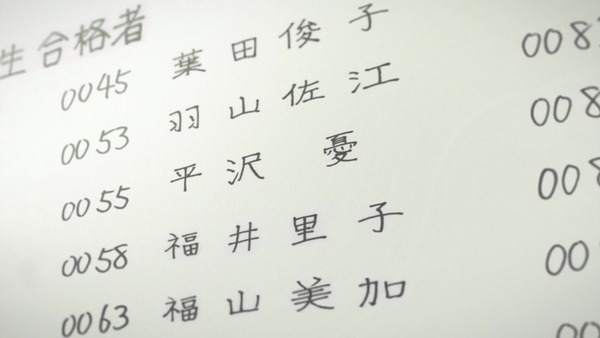 生合格者
0045 葉田俊子
0053 羽山佐江
0055 平沢 憂
0058 福井里子
0063 福山美加
008
008
00
00